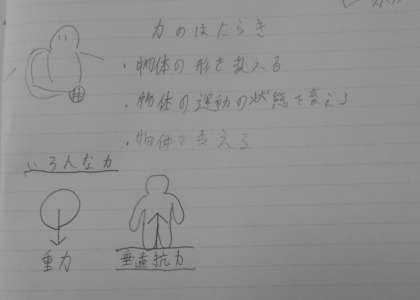 力のはたらき
・物体の形を変える
・物体の運動の状態を変える
・物体を支える
いろんな力
重力
垂直抗力